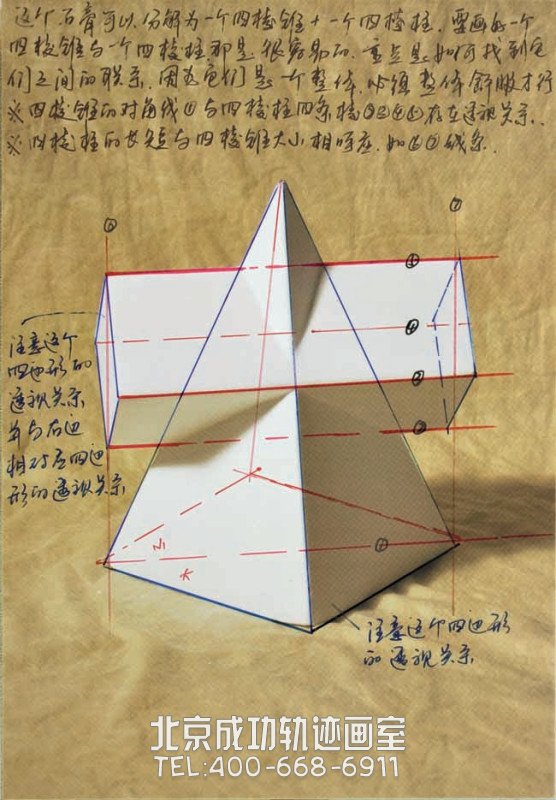 这个石膏可以分解为一个四棱锥+一个四棱柱.要画好一个
四棱锥与一个四棱柱那是很容易的.重点是如何找到它
们之间的联系.因为它们是一个整体.必须整体舒服才行
※四棱锥的对角线①与四棱柱四条棱③②④⑤存在透视关系.
※四棱柱的长短与四棱锥大小相呼应.如⑥⑦线条.
⑥
⑦
⑤
④
②
③
①
注意这个
四边形的
透视关系
并与右边
相对应四边
形的透视关系
小
大
注意这个四边形
的透视关系
北京成功轨迹画室
TEL:400-668-6911